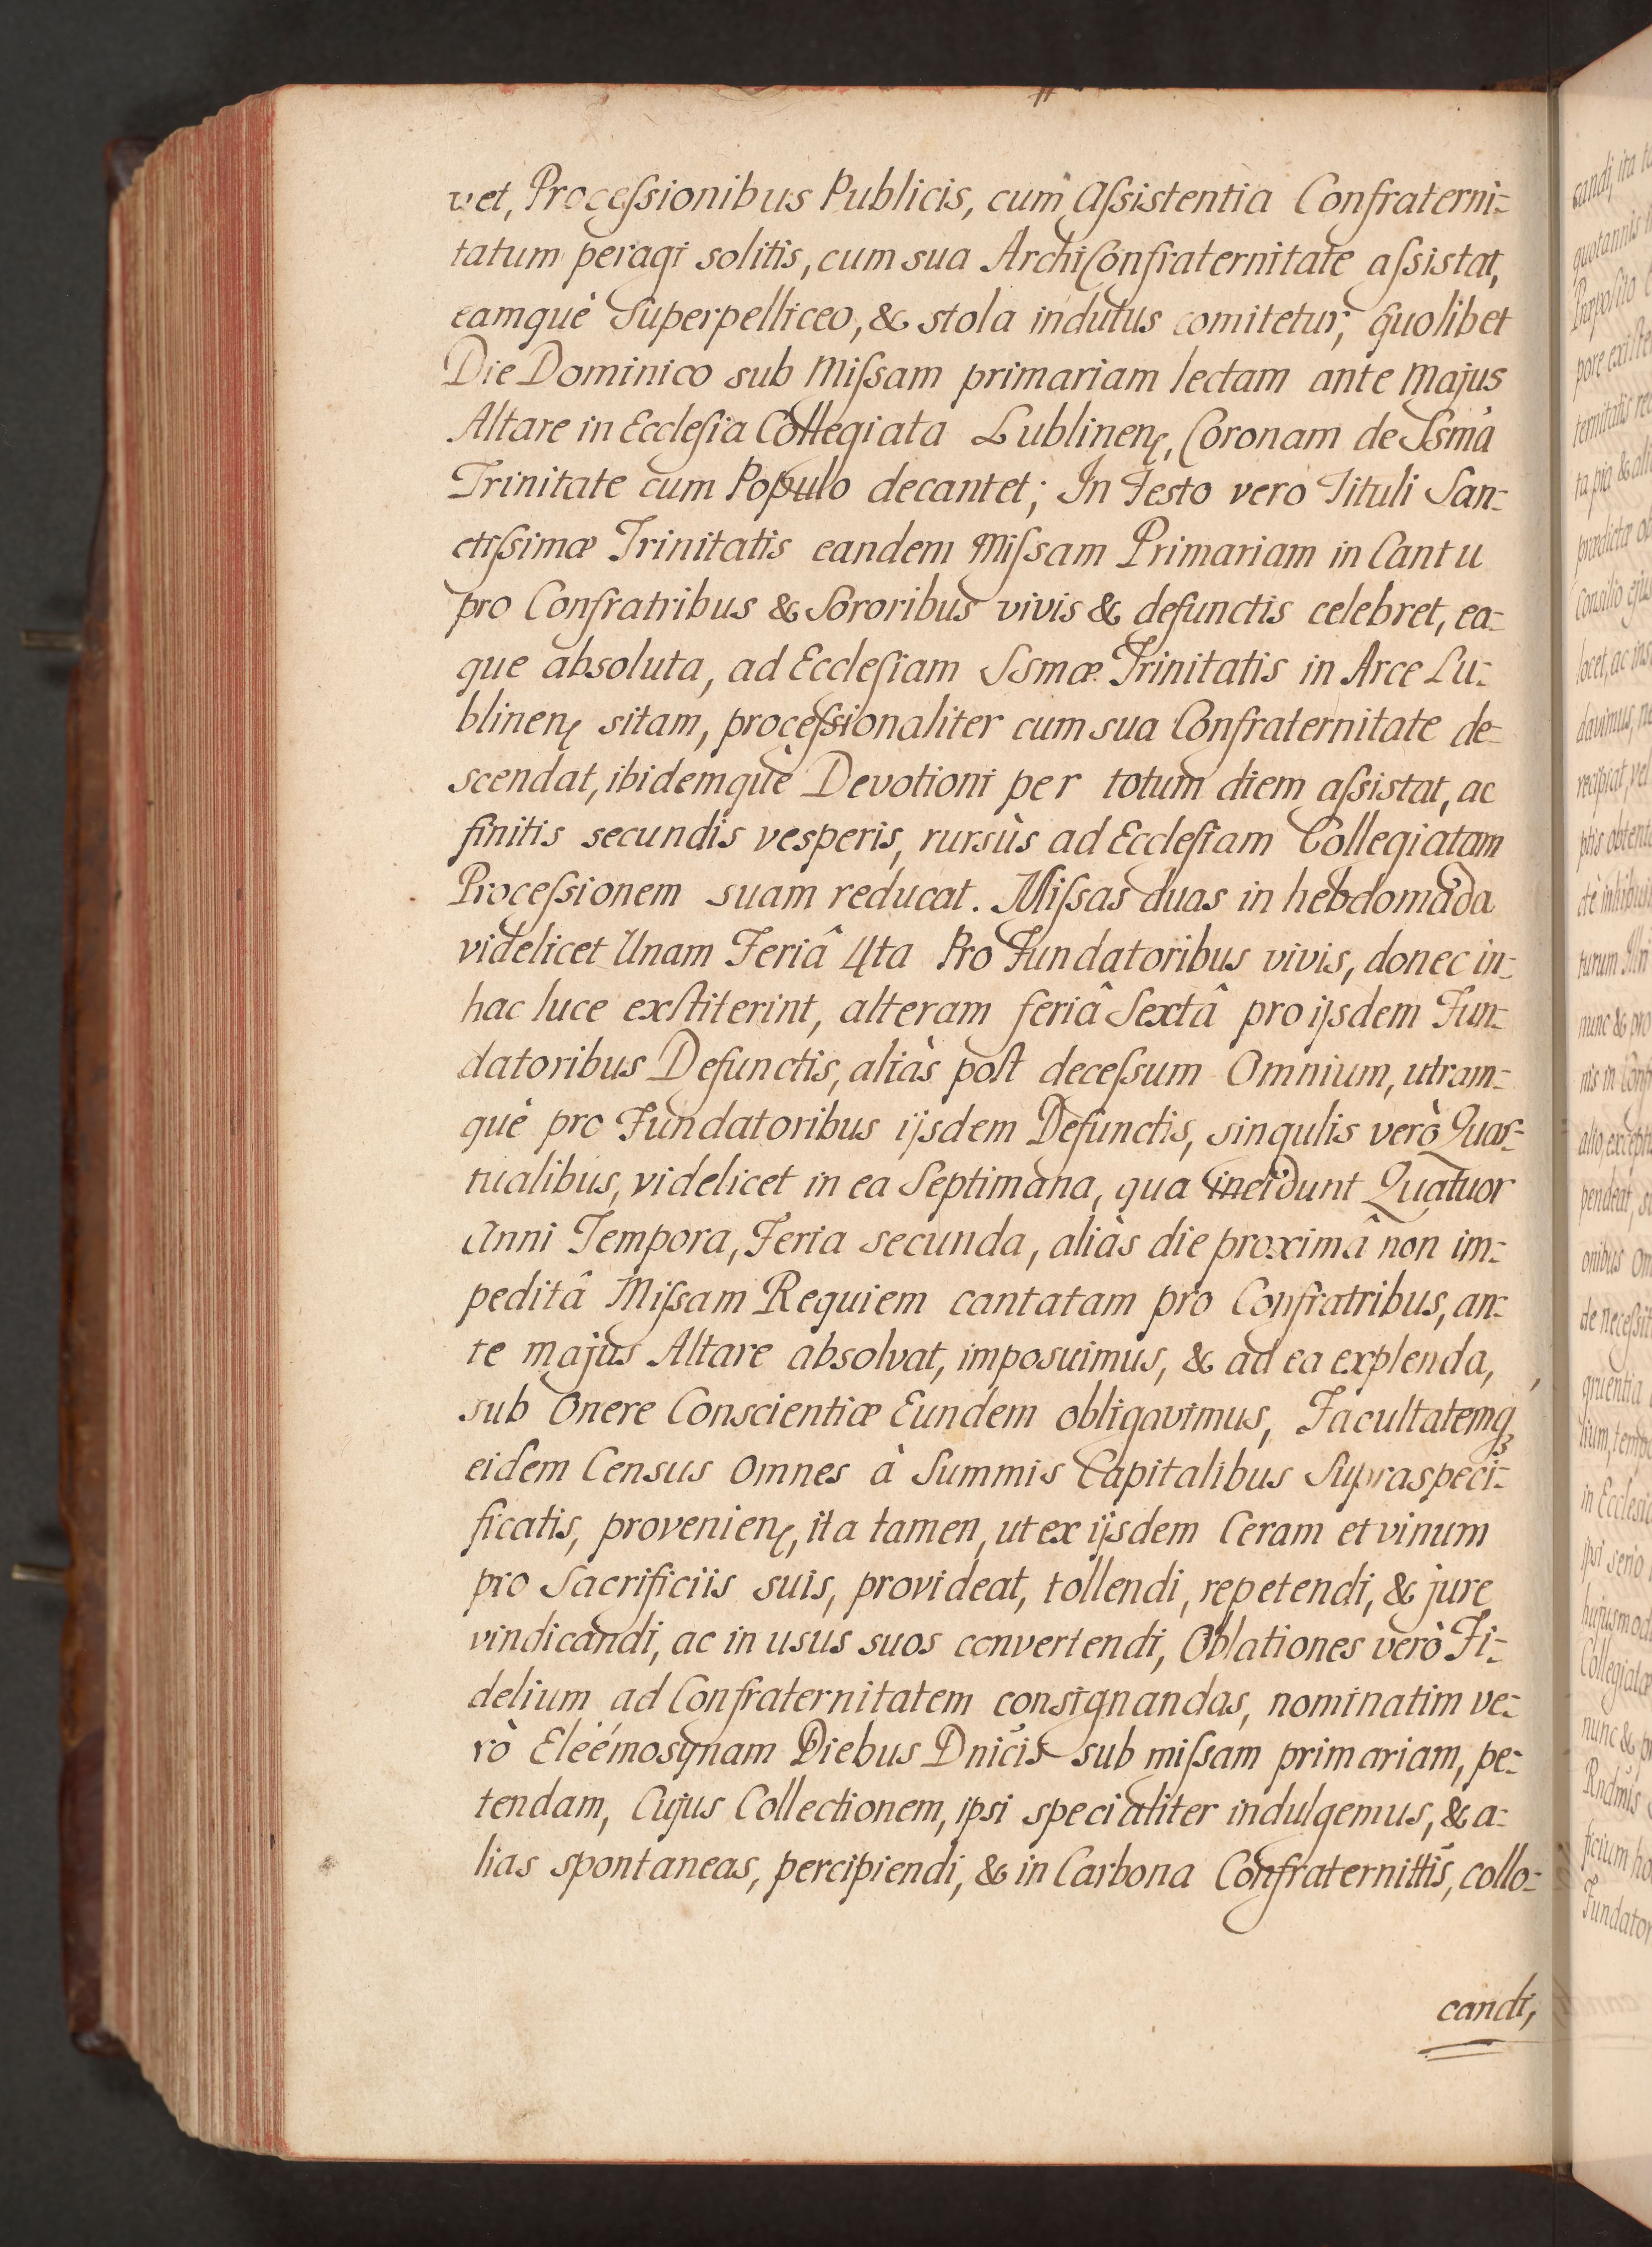 vet, Proceſsionibus Publicis, cum Aſsistentia Confraterni-
tatum peragi solitis, cum sua ArchiConfraternitate aſsistat,
eamquè Superpelliceo, & stola indutus comitetur, quolibet
Die Dominico sub Miſsam primariam lectam ante Majus
Altare in Eccleſia Collegiata Lublinenę, Coronam de Ssmâ
Trinitate cum Populo decantet; In Festo verò Tituli San-
ctiſsimæ Trinitatis eandem Miſsam Primariam in Cantu
pro Confratribus & Sororibus vivis & defunctis celebret, ea-
que absoluta, ad Eccleſiam Ssmæ Trinitatis in Arce Lu-
blinenę sitam, proceſsionaliter cum sua Confraternitate de-
scendat, ibidemquè Devotioni per totum diem aſsistat, ac
finitis secundis vesperis, rursùs ad Eccleſiam Collegiatam
Proceſsionem suam reducat. Miſsas duas in hebdomada
videlicet Unam Feriâ 4ta Pro Fundatoribus vivis, donec in
hac luce exſtiterint, alteram feriâ Sextâ pro ijsdem Fun-
datoribus Defunctis, aliàs poſt deceſsum Omnium, utram-
què pro Fundatoribus ijsdem Defunctis, singulis verò Quar-
tualibus, videlicet in ea Septimana, qua incidunt Quatuor
Anni Tempora, Feria secunda, aliàs die proximâ non im-
peditâ Miſsam Requiem cantatam pro Confratribus, an-
te majus Altare absolvat, imposuimus, & ad ea explenda,
sub Onere Conscientiæ Eundem obligavimus, Facultatemqꝫ
eidem Census Omnes à Summis Capitalibus Supraspeci-
ficatis, provenienę, ita tamen, ut ex ijsdem Ceram et vinum
pro Sacrificiis suis, provideat, tollendi, repetendi, & jure
vindicandi, ac in usus suos convertendi, Oblationes verò Fi-
delium ad Confraternitatem consignandas, nominatim ve-
rò Eleémosynam Diebus Dnicis sub miſsam primariam, pe-
tendam, Cujus Collectionem, ipsi specialiter indulgemus, & a-
lias spontaneas, percipiendi, & in Carbona Confraternittis, collo-
candi,